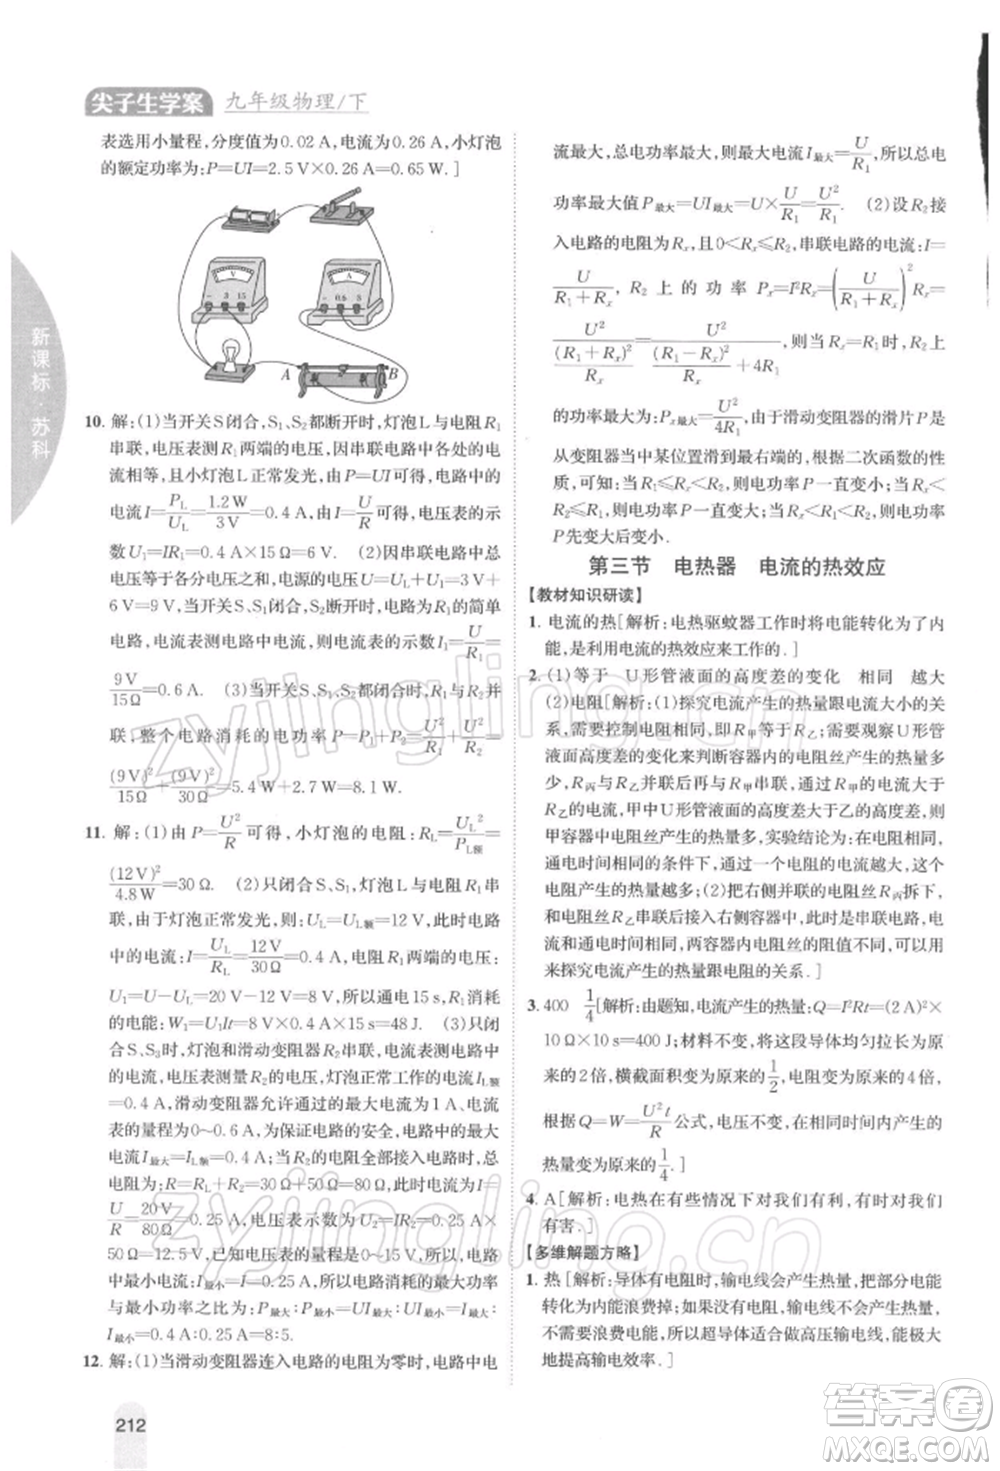 尖子生学案 九年级物理/下
表选用小量程，分度值为0.02 A，电流为0.26 A，小灯泡
的额定功率为：P=UI=2.5 V×0.26 A=0.65 W.］
V
− 3 15
A
− 0.6 3
A B
10. 解：(1)当开关S闭合，S₁、S₂都断开时，灯泡L与电阻R₁
串联，电压表测R₁两端的电压，因串联电路中各处的电
流相等，且小灯泡L正常发光，由P=UI可得，电路中的
电流I=P_L/U_L=1.2 W/3 V=0.4 A，由I=U/R可得，电压表的示
数U₁=IR₁=0.4 A×15 Ω=6 V. (2)因串联电路中
各处分电压之和，所以，电源的电压：U=U_L+U₁=3 V
+6 V=9 V，当开关S、S₁闭合，S₂断开时，电路为R₁的简单
电路，电流表测电路中电流，电流表的示数I₁=U/R₁=
9 V/15 Ω=0.6 A. (3)当开关S、S₁、S₂都闭合时，R₁与R₂并
联，整个电路消耗的电功率：P=U²/R₁+U²/R₂=
(9 V)²/15 Ω+(9 V)²/30 Ω=5.4 W+2.7 W=8.1 W.
11. 解：(1)由P=U²/R可得，小灯泡的电阻：R_L=U_L²/P_L额=
(12 V)²/4.8 W=30 Ω. (2)只闭合S、S₁，灯泡L和电阻R₁串
联，由于灯泡正常发光，所以U_L=U_L额=12 V，此时电路
中的电流：I=U_L/R_L=12 V/30 Ω=0.4 A，电阻R₁两端的电压：
U₁=U−U_L=20 V−12 V=8 V，所以通电15 s，R₁消耗
的电能：W₁=U₁It=8 V×0.4 A×15 s=48 J. (3)只闭
合S、S₃时，灯泡和滑动变阻器串联，电流表测电路中电流，
电压表测量R₂的电压，灯泡正常工作的电流I_L额=
0.4 A，滑动变阻器允许通过的最大电流为1 A，电流
表的量程为0～0.6 A，为保证电路的安全，电路中的最大
电流I最大=I_L额=0.4 A；当R₂的电阻全部接入电路中时，总
电阻为：R=R_L+R₂=30 Ω+50 Ω=80 Ω，此时电流为：I=
U/R=20 V/80 Ω=0.25 A，电压表示数为U₂=IR₂=0.25 A×
50 Ω=12.5 V，已知电压表的量程为0～15 V，所以，电路
中的最小电流：I最小=0.25 A；所以电路消耗的最大功率
和最小功率之比为：P最大：P最小=UI最大：UI最小=I最大：
I最小=0.4 A：0.25 A=8：5.
12. 解：(1)当滑动变阻器连入电路的电阻为零时，电路中电
流最大，总电功率最大，则最大电流I最大=U/R₁，所以总电
功率最大值P最大=UI最大=U×U/R₁=U²/R₁. (2)设R₂接
入电路的电阻为Rₓ，且0<Rₓ≤R₂，串联电路的电流：I=
U/(R₁+Rₓ)，R₂上的功率Pₓ=I²Rₓ=(U/(R₁+Rₓ))²Rₓ=
U²/((R₁+Rₓ)²/Rₓ)=U²/((R₁−Rₓ)²/Rₓ+4R₁)，当Rₓ=R₁时，Rₓ消耗
的功率最大为：Pₓ最大=U²/4R₁；由于滑动变阻器的滑片P是
从变阻器当中某位置滑到最右端的，根据二次函数的性
质，可知：当R₁≤Rₓ≤R₂时，则电功率P一直变小；当
Rₓ≤R₂≤R₁时，电功率P一直变大；当Rₓ<R₁<R₂时，
P先变大后变小.
第三节 电热器 电流的热效应
【教材知识研读】
1. 电流的热［解析：电热驱蚊器工作时将电能转化为了内
能，是利用电流的热效应来工作的.］
2. (1)等于 U形管液面的高度差的变化 相同 越大
(2)电阻［解析：(1)探究电流产生的热量跟电流大小的关
系，需要控制电阻相同，即R甲=R乙；需要观察U形管
液面高度差的变化来判断容器中的电阻丝产生的热量
多少，R丙与R乙并联后再与R甲串联，通过R甲的电流大于
R乙的电流，甲中U形管液面的高度差大于乙的高度差，
甲容器中电阻丝产生的热量多，实验结论为：在电阻相同，
通电时间相同的条件下，通过一个电阻的电流越大，这个
电阻产生的热量越多；(2)把右侧并联的电阻丝R丙拆下，
并与R乙串联后接入右侧容器中，就是串联电路，电流和
通电时间相同，两容器内电阻丝的阻值不相等，可以用
来探究电流产生的热量跟电阻的关系.］
3. 400 1/4［解析：由题知，电流产生的热量：Q=I²Rt=(2 A)²×
10 Ω×10 s=400 J；材料不变，将这段导体均匀拉长为原
来的2倍，横截面积变为原来的1/2，电阻变为原来的4倍，
根据Q=W=U²t/R公式，电压不变，在相同时间内产生的
热量变为原来的1/4.］
4. A［解析：电热在有些情况下对我们有利，有时对我们
有害.］
【多维解题方略】
1. 热［解析：导体有电阻时，输电线会产生热量，把部分电能
转化为内能浪费掉；如果没有电阻，输电线不会产生热量，
不需要浪费电能，超导体更适合做高压输电线，能大大
地提高输电效率.］
新课标·苏科
212
zyjingling.cn
zyjingling.cn
答案圈
MXQE.COM